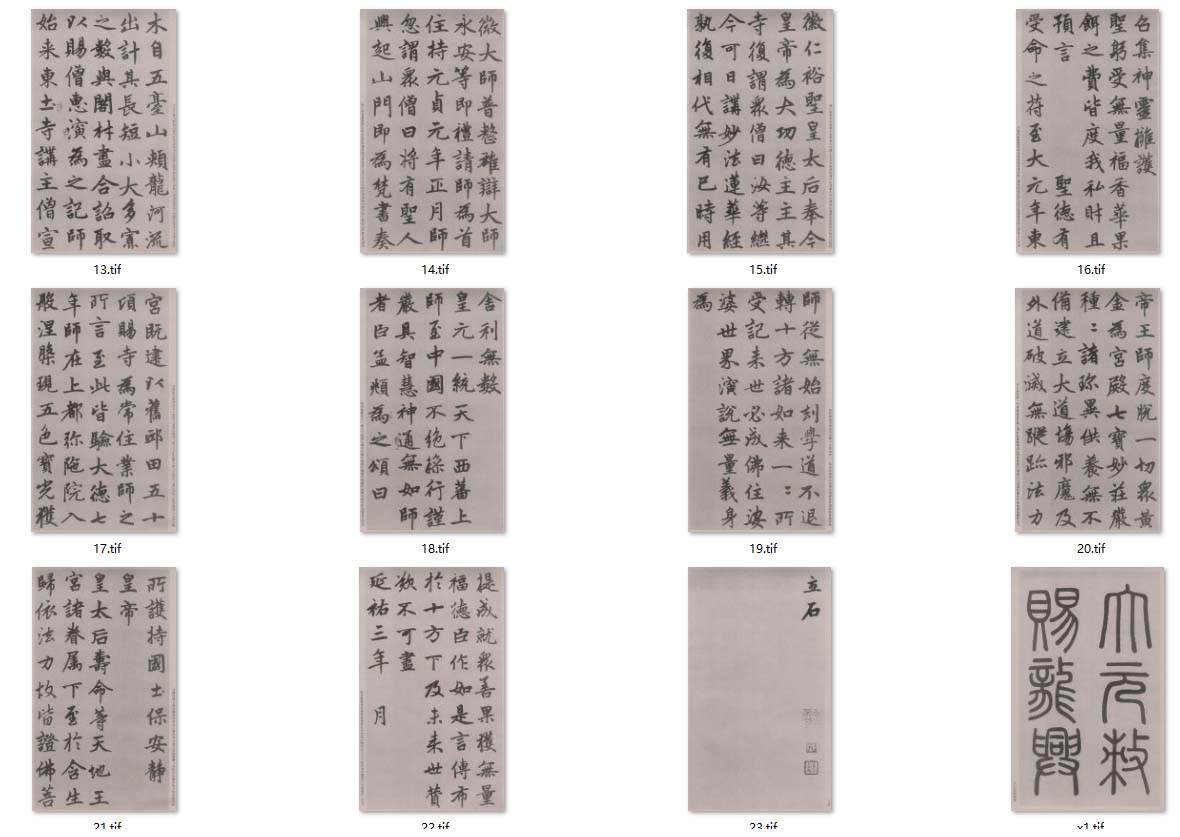 木自五臺山頰龍河流
出計其長短小大多寡
之數與閣材盡合詔取
以賜僧惠演為之記師
始来東土寺講主僧宣
13.tif
微大師普整雄辯大師
永安等即禮請師為首
住持元貞元年正月師
忽謂眾僧曰將有聖人
興起山門即為梵書奏
14.tif
徽仁裕聖皇太后奉今
皇帝為大功德主主其
寺復謂眾僧曰汝等繼
今可日講妙法蓮華經
孰復相代無有已時用
15.tif
召集神靈擁護
聖躬受無量福香華果
餌之費皆度我私財且
預言 聖德有
受命之符至大元年東
16.tif
宮既建以舊邸田五十
頃賜寺為常住業師之
所言至此皆驗大德七
年師在上都弥陁院入
般涅槃現五色寶光獲
17.tif
舍利無數
皇元一統天下西蕃上
師至中國不絕操行謹
嚴具智慧神通無如師
者臣孟頫為之頌曰
18.tif
師從無始刼學道不退
轉十方諸如来一〻所
受記来世必成佛住娑
婆世界演說無量義身
為
19.tif
帝王師度脫一切眾黃
金為宮殿七寶妙莊嚴
種〻諸珍異供養無不
備建立大道場邪魔及
外道破滅無蹤跡法力
20.tif
所護持國土保安靜
皇帝
皇太后壽命等天地王
宮諸眷属下至於含生
歸依法力故皆證佛菩
21.tif
提成就眾善果獲無量
福德臣作如是言傳布
於十方下及未来世贊
歎不可盡
延祐三年 月
22.tif
立石
23.tif
大元敕
賜龍興
x1.tif